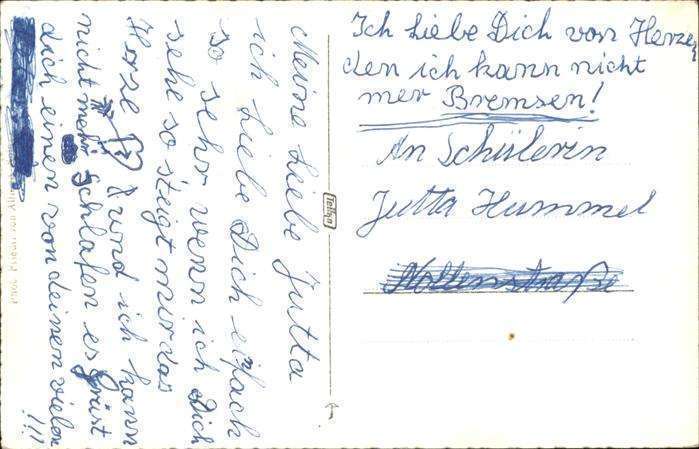 Meine Liebe Jutta
ich Liebe Dich einfach
so sehr wenn ich Dich
sehe so steigt mir das
Herze und ich kann
nicht mehr Schlafen es grüst
dich einen von deinen vielen
!!!
Ich Liebe Dich von Herzen
den ich kann nicht
mer Bremsen!
An Schülerin
Jutta Hummel
Teltka